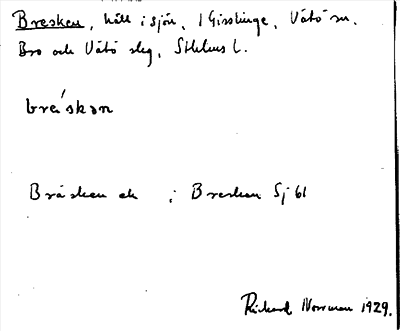 Bresken, håll i sjön, 1 Gisslinge, Vätö sn.
Bro och Vätö slg, Sthlms l.
bre´skən
Bråsken ek i Bresken Sj 61
Rickard Norrman 1929.